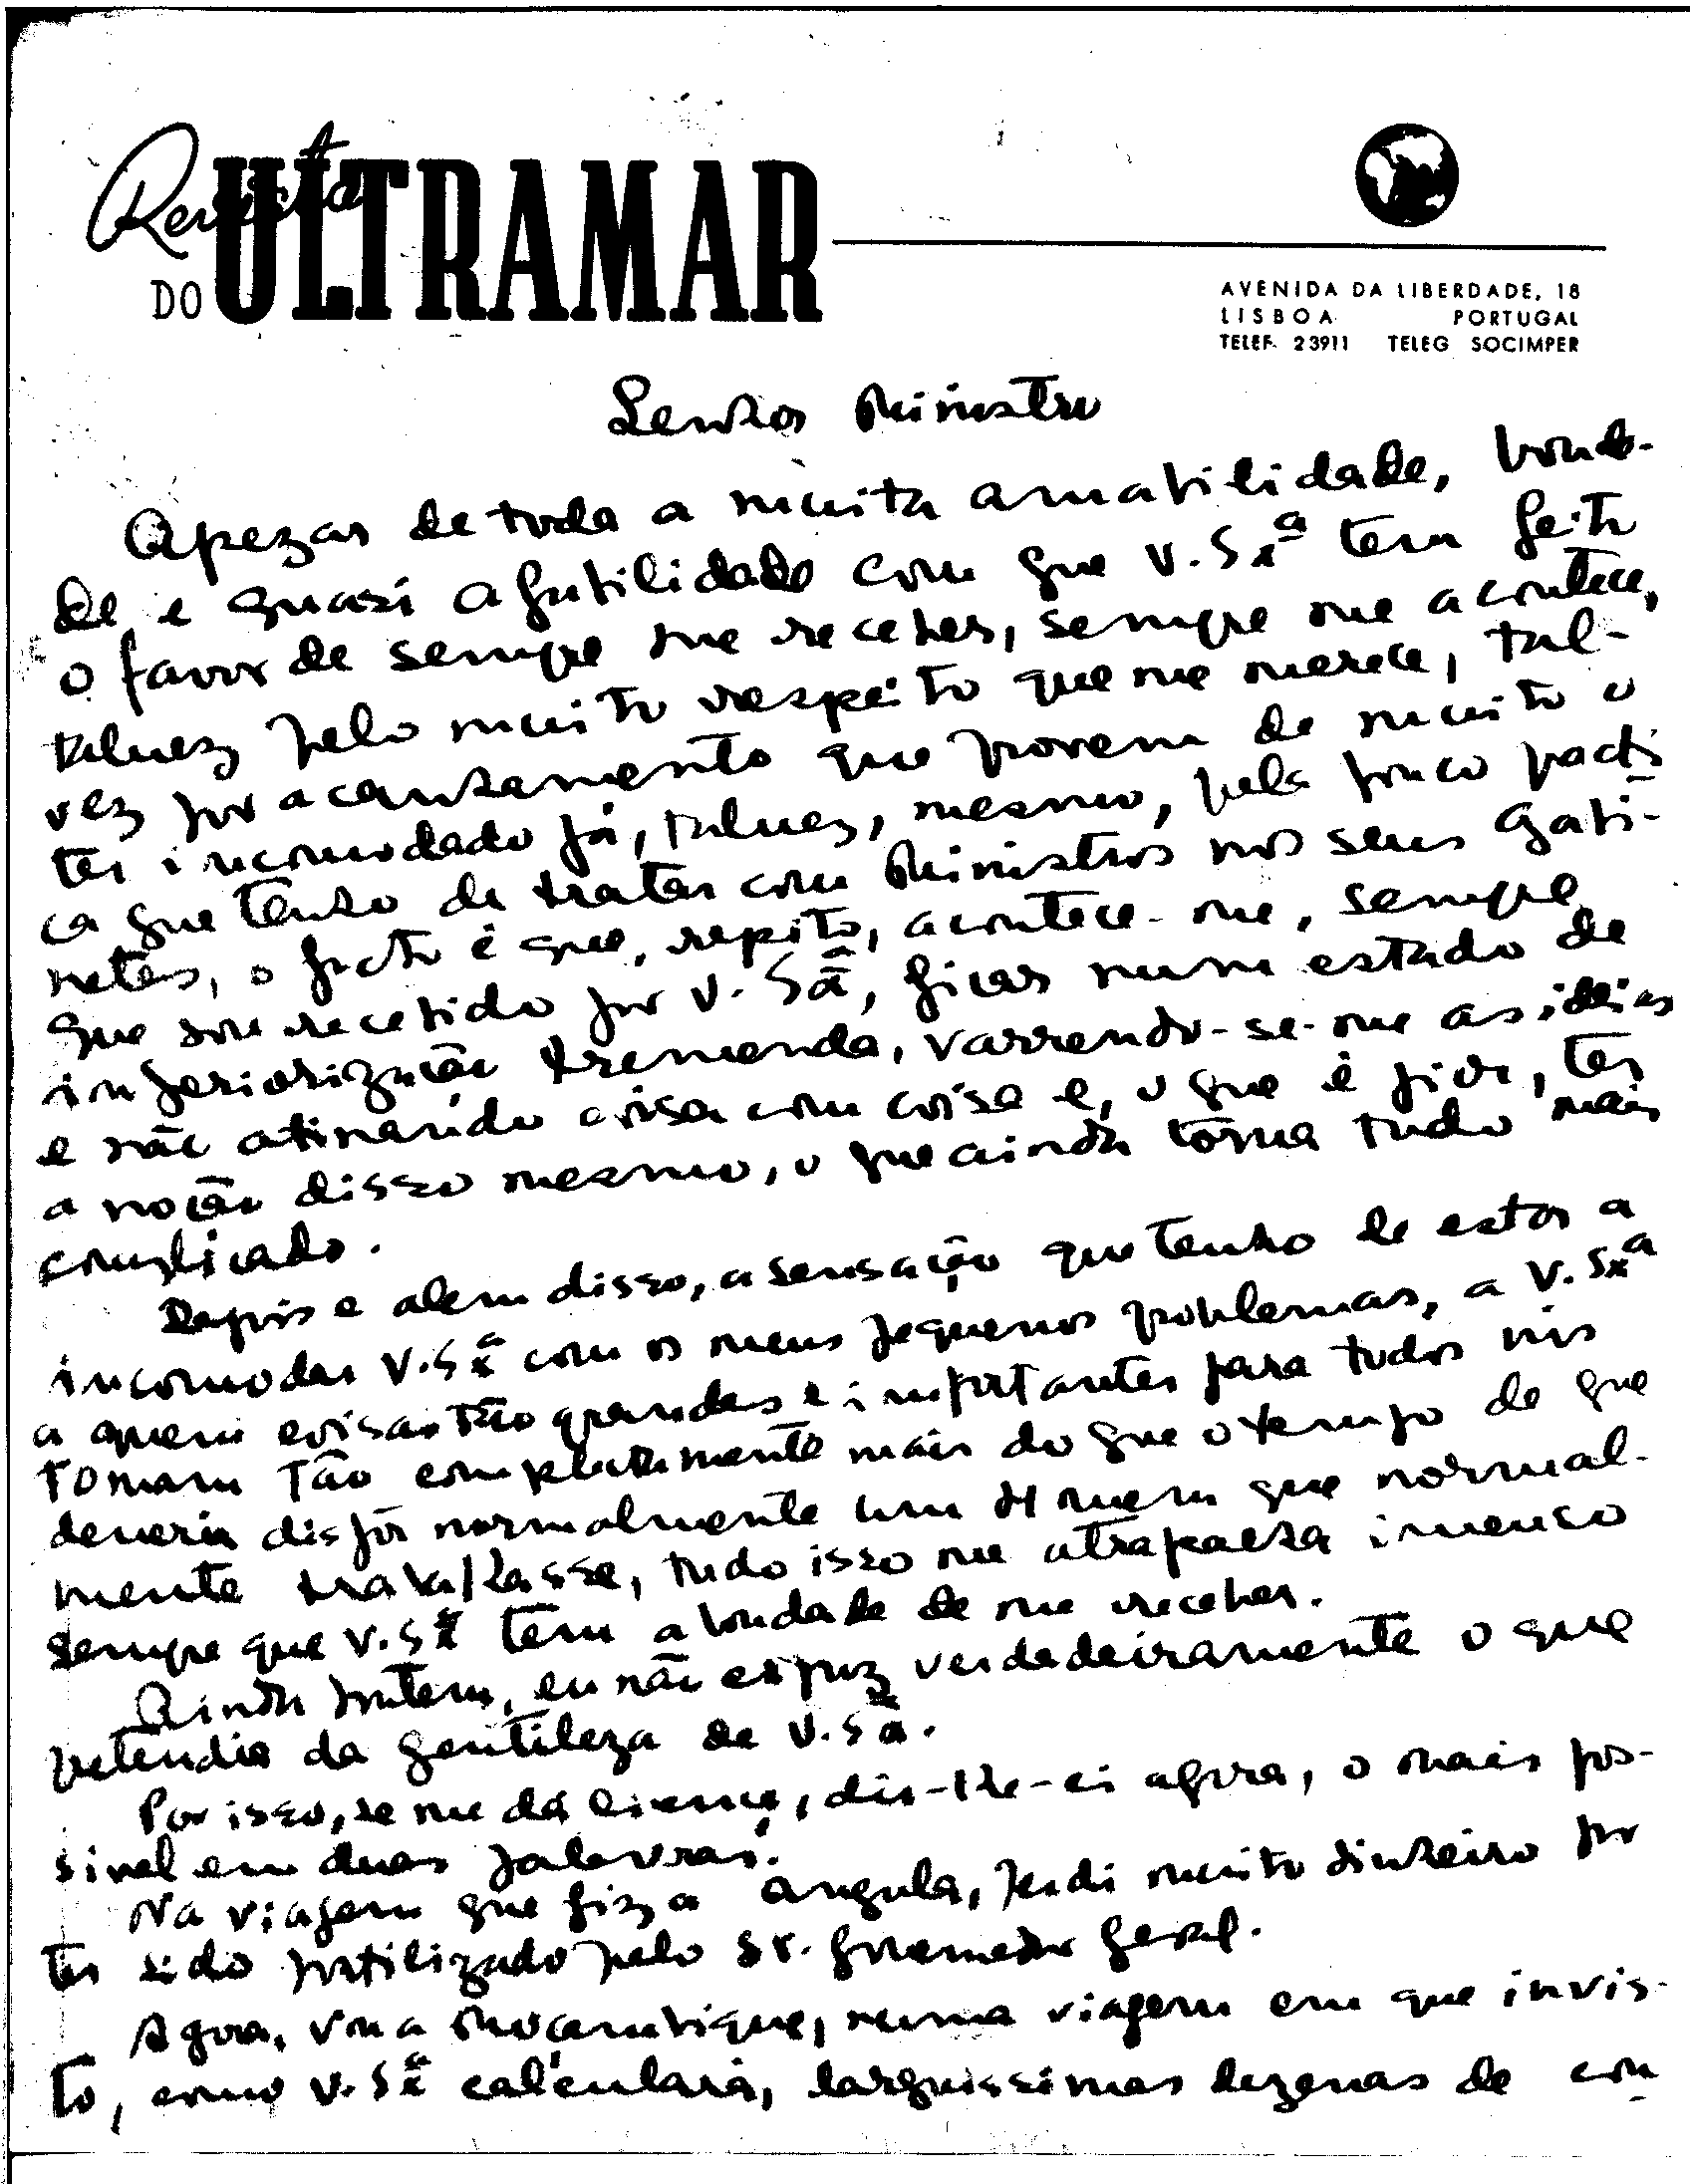 Revista
DO ULTRAMAR
AVENIDA DA LIBERDADE, 18
LISBOA PORTUGAL
TELEF. 23911 TELEG SOCIMPER
Senhor Ministro
Apezar de toda a muita amabilidade, bonda-
de e quasi afabilidade com que V. Exª tem feito
o favor de sempre me receber, sempre me acontece,
talvez pelo muito respeito que me merece, tal-
vez por acanhamento que provem de muito o
ter incomodado já, talvez, mesmo, pela pouca práti
ca que tenho de tratar com Ministros nos seus gabi-
netes, o facto é que, repito, acontece-me, sempre
que sou recebido por V. Exª, ficar num estado de
inferiorização tremenda, varrendo-se-me as idéias
e não atinando coisa com coisa e, o que é pior, ter
a noção disso mesmo, o que ainda torna tudo mais
complicado.
Depois e alem disso, a sensação que tenho de estar a
incomodar V. Exª com os meus pequenos problemas, a V. Exª
a quem coisas tão grandes e importantes para todos nós
tomam tão completamente mais do que o tempo de que
deveria dispôr normalmente um Homem que normal-
mente trabalhasse, tudo isso me atrapalha imenso
sempre que V. Exª tem a bondade de me receber.
Ainda ontem, eu não expuz verdadeiramente o que
pretendia da gentileza de V. Exª.
Por isso, se me dá licença, dir-lhe-ei agora, o mais pos-
sivel em duas palavras:
Na viagem que fiz a Angola, perdi muito dinheiro por
ter sido hostilizado pelo Sr. Governador Geral.
Agora, vou a Moçambique, numa viagem em que invis-
to, como V. Exª calculará, larguissimas dezenas de con